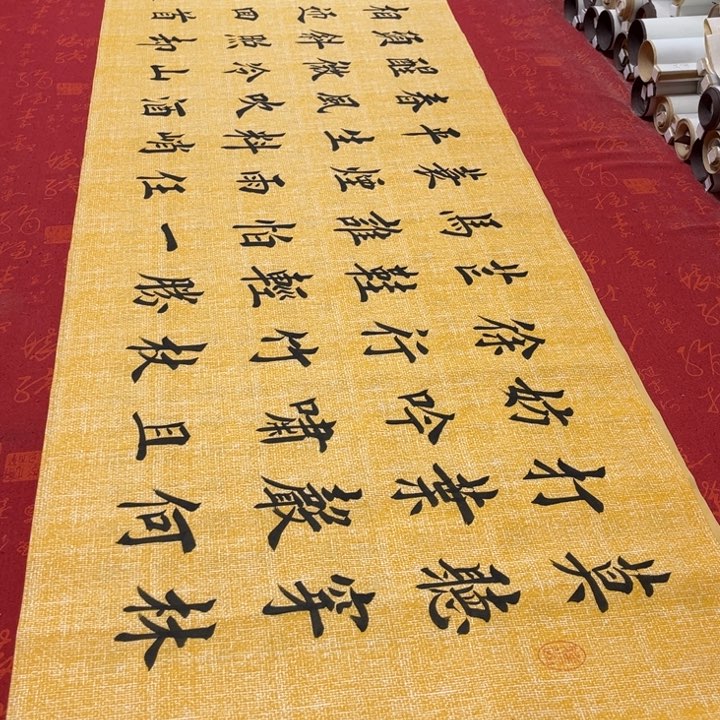 莫聽穿林
打葉聲何
妨吟嘯且
徐行竹杖
芒鞋輕勝
馬誰怕一
蓑煙雨任
平生料峭
春風吹酒
醒微冷山
頭斜照卻
相迎回首